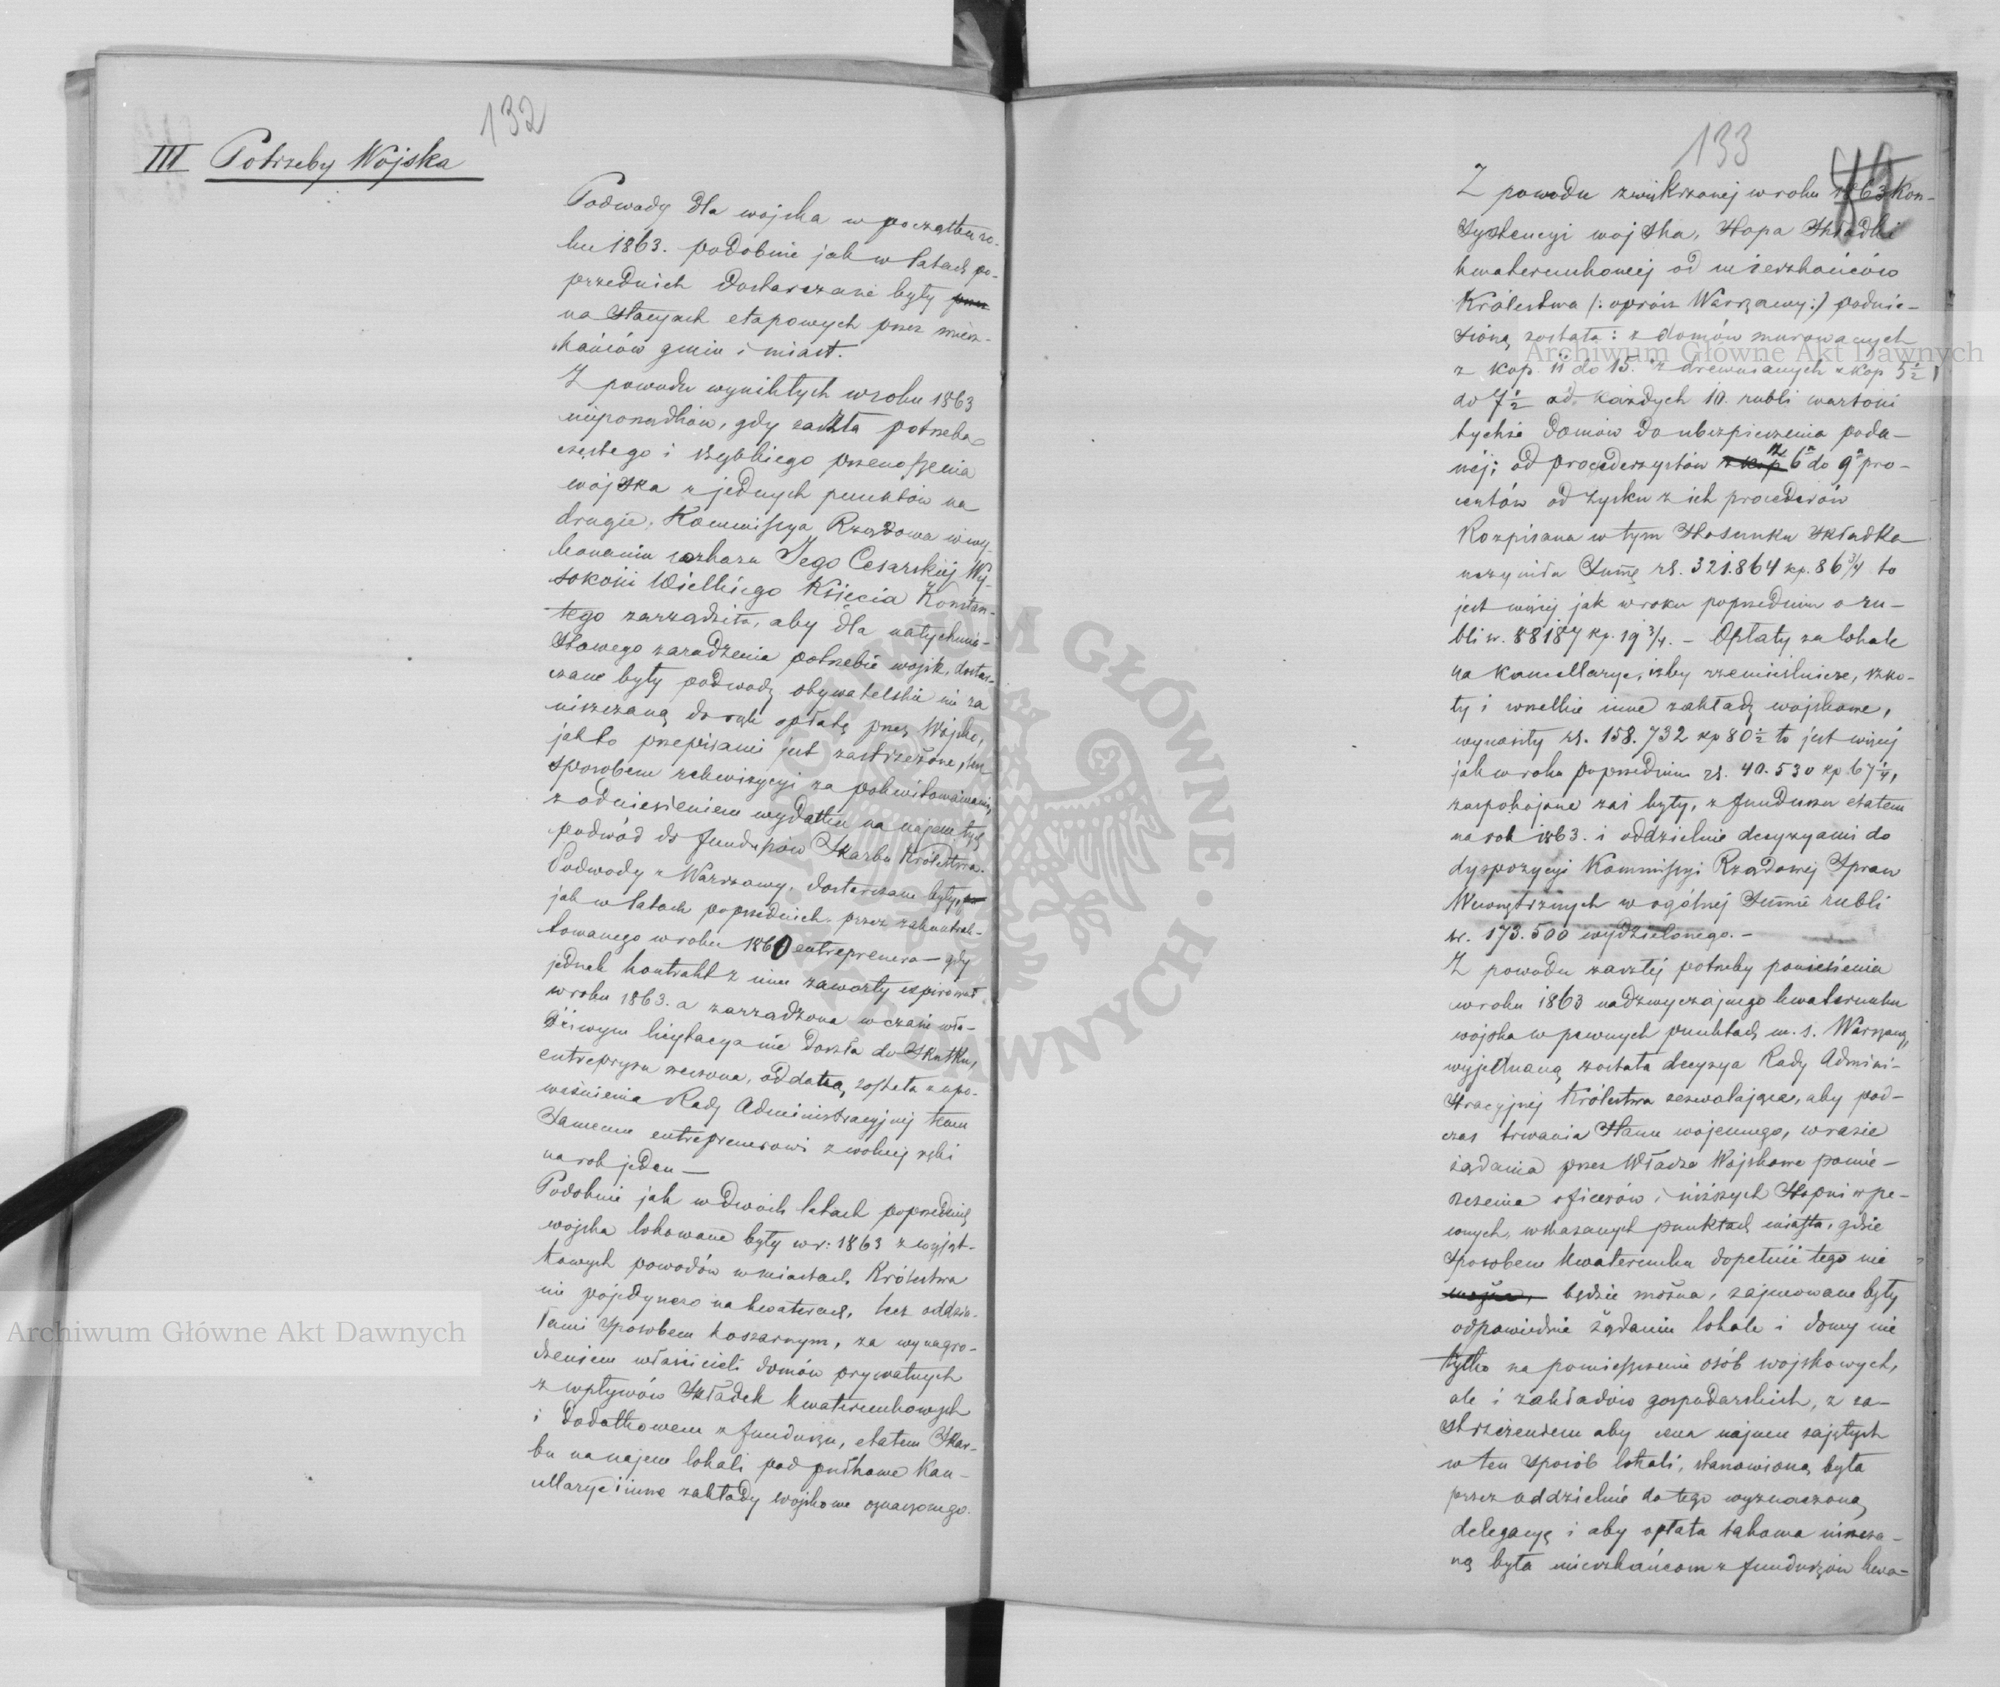 132
III Potrzeby Wojska
Podwody dla wojska w początku ro-
ku 1863. podobnie jak w latach po-
przednich dostarczane były przez
na stacyach etapowych przez miesz-
kańców gmin i miast.
Z powodu wynikłych w roku 1863
nieporządków, gdy zaszła potrzeba
częstego i szybkiego przenoszenia
wojska z jednych punktów na
drugie, Kommissya Rządowa w wy-
konaniu rozkazu Jego Cesarskiej Wy-
sokości Wielkiego Księcia Konstan-
tego zarządziła, aby dla natychmia-
stowego zaradzenia potrzebie wojsk, dostar-
czane były podwody obywatelskie nie za
uiszczaną do rąk opłatę przez Wojsko,
jak to przepisami jest zastrzeżone, lecz
sposobem rekwizycyi za pokwitowaniami,
z odniesieniem wydatku na najem tych
podwód do funduszów Skarbu Królestwa.
Podwody z Warszawy, dostarczane były,
jak w latach poprzednich, przez zakontrak-
towanego w roku 1860 entreprenera – gdy
jednak kontrakt z nim zawarty expirował
w roku 1863. a zarządzona w czasie wła-
ściwym licytacya nie doszła do skutku,
entrepryza rzeczona, oddaną została z upo-
ważnienia Rady Administracyjnej temu
samemu entreprenerowi z wolnej ręki
na rok jeden –
Podobnie jak w dwóch latach poprzednich
wojska lokowane były w r: 1863 z wyjąt-
kowych powodów w miastach Królestwa
nie pojedynczo na kwaterach, lecz oddzia-
łami sposobem koszarnym, za wynagro-
dzeniem właścicieli domów prywatnych
z wpływów składek kwaterunkowych
i dodatkowem z funduszu, etatem Skar-
bu na najem lokali pod pułkowe Kan-
cellarye i inne zakłady wojskowe oznaczonego.
133
Z powodu zwiększonej w roku 1863 kon-
systencyi wojska, stopa składki
kwaterunkowej od mieszkańców
Królestwa (: oprócz Warszawy :) podnie-
sioną została: z domów murowanych
z kop. 11 do 15. z drewnianych z kop 5½
do 7½ od każdych 10. rubli wartości
tychże domów do ubezpieczenia poda-
nej; od procederzystów z kop z 6 do 9 pro-
centów od zysku z ich procederów
Rozpisana w tym stosunku składka
uczyniła summę rs. 321.864 kp. 86¾ to
jest więcej jak w roku poprzednim o ru-
bli sr. 88187 kp. 19¾. – Opłaty za lokale
na kancellarye, izby rzemieślnicze, szko-
ły i wszelkie inne zakłady wojskowe,
wynosiły rs. 158.732 kp 80½ to jest więcej
jak w roku poprzednim rs. 40.530 kp 67¼,
zaspokojone zaś były, z funduszu etatem
na rok 1863. i oddzielnie decyzyami do
dyspozycyi Kommissyi Rządowej Spraw
Wewnętrznych w ogólnej summie rubli
sr. 173.500 wydzielonego. –
Z powodu zaszłej potrzeby pomieszczenia
w roku 1863 nadzwyczajnego kwaterunku
wojska w pewnych punktach m. s. Warszawy,
wyjednaną została decyzya Rady Admini-
stracyjnej Królestwa zezwalająca, aby pod-
czas trwania stanu wojennego, w razie
żądania przez Władze Wojskowe pomie-
szczenia oficerów i niższych stopni w pe-
wnych, wskazanych punktach miasta, gdzie
sposobem kwaterunku dopełnić tego nie
można, będzie można, zajmowane były
odpowiednie żądaniu lokale i domy nie
tylko na pomieszczenie osób wojskowych,
ale i zakładów gospodarskich, z za-
strzeżeniem aby cena najmu zajętych
w ten sposób lokali, stanowioną była
przez oddzielnie do tego wyznaczoną
delegacyę i aby opłata takowa uiszcza-
ną była mieszkańcom z funduszów kwa-
Archiwum Główne Akt Dawnych
Archiwum Główne Akt Dawnych
ARCHIWUM GŁÓWNE · AKT DAWNYCH ·